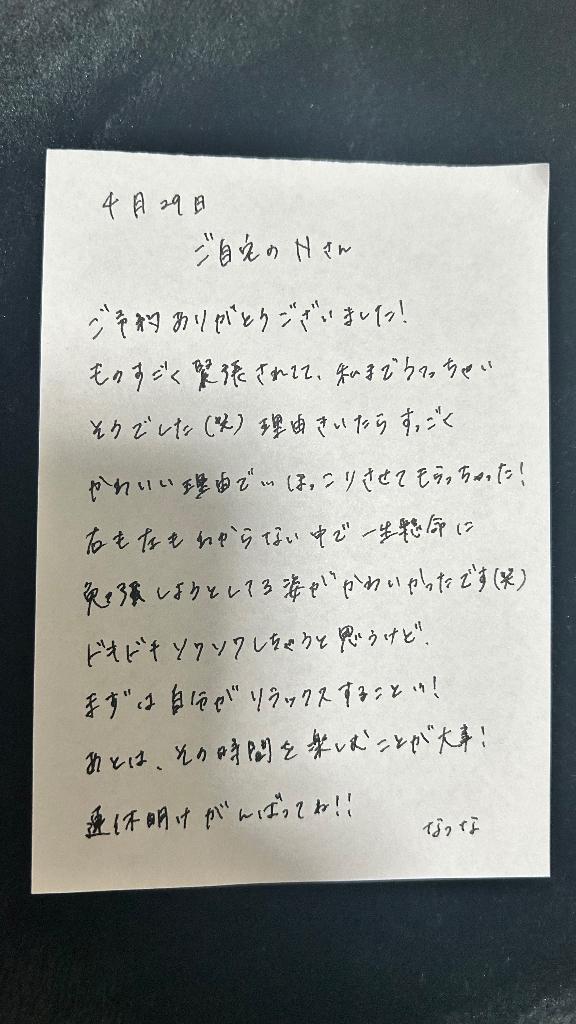 4月29日
ご自宅のNさん
ご予約ありがとうございました!
ものすごく緊張されてて、私までうつっちゃい
そうでした(笑) 理由きいたらすっごく
かわいい理由で… ほっこりさせてもらっちゃった!
右も左もわからない中で一生懸命に
勉強しようとしてる姿がかわいかったです(笑)
ドキドキソワソワしちゃうと思うけど、
まずは自分がリラックスすること!!
あとは、その時間を楽しむことが大事!
連休明けがんばってね!!
なつな